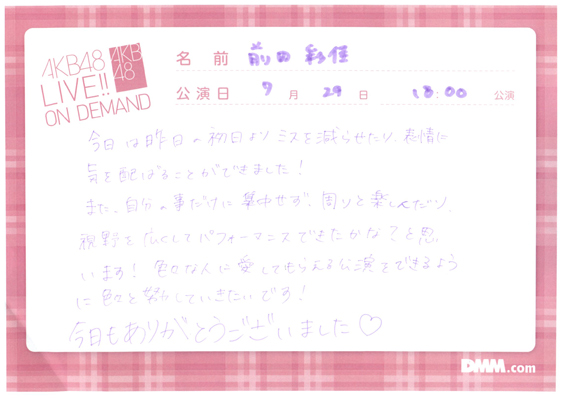 AKB48
LIVE!!
ON DEMAND
AKB
48
名前 前田 彩佳
公演日 7月29日 18:00 公演
今日は昨日の初日よりミスを減らせたり、表情に
気を配ばることができました!
また、自分の事だけに集中せず、周りと楽しんだり、
視野を広くしてパフォーマンスできたかな?と思
います! 色々な人に愛してもらえる公演をできるよう
に色々と勉していきたいです!
今日もありがとうございました♡
DMM.com